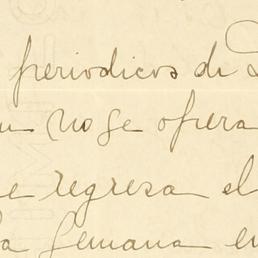 periodicos de
no se opera
regresa el
la semana en